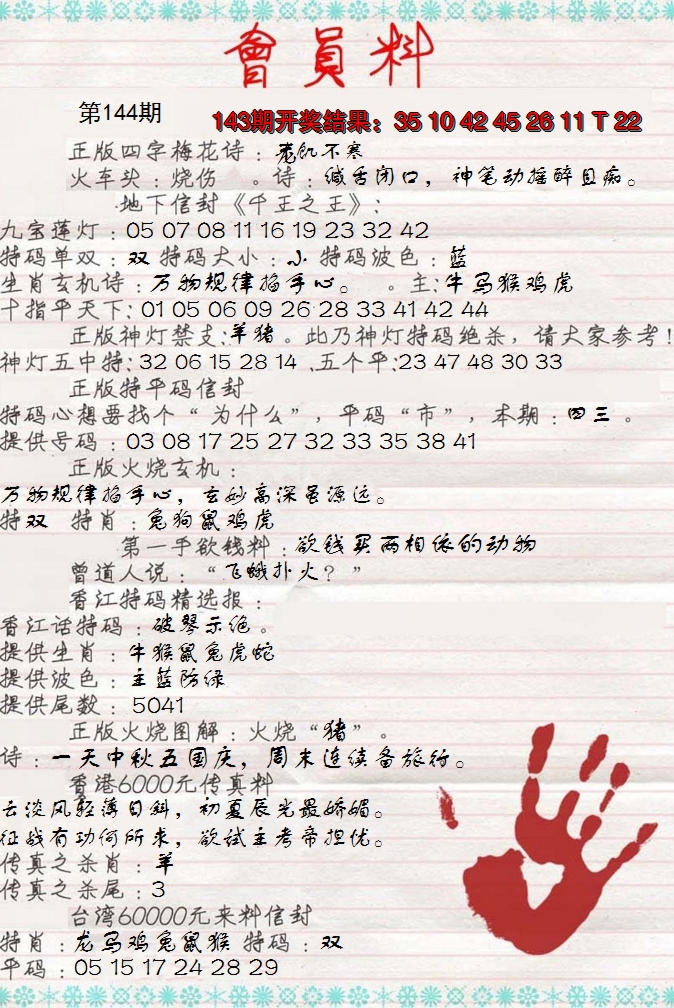 會員料
第144期
143期开奖结果：35 10 42 45 26 11 T 22
正版四字梅花诗：老饥不寒
火车头：烧伤 。诗：缄舌闭口，神笔动摇醉目痴。
地下信封《千王之王》：
九宝莲灯：05 07 08 11 16 19 23 32 42
特码单双：双 特码大小：小 特码波色：蓝
生肖玄机诗：万物规律掐手心。 。主：牛马猴鸡虎
十指平天下：01 05 06 09 26 28 33 41 42 44
正版神灯禁支：羊猪。此乃神灯特码绝杀，请大家参考！
神灯五中特：32 06 15 28 14 .五个平：23 47 48 30 33
正版特平码信封
特码心想要找个“为什么”，平码“市”，本期：四三。
提供号码：03 08 17 25 27 32 33 35 38 41
正版火烧玄机：
万物规律掐手心，玄妙高深虽源远。
特双 特肖：兔狗鼠鸡虎
第一手欲钱料：欲钱买两相依的动物
曾道人说：“飞蛾扑火？”
香江特码精选报：
香江话特码：破琴示绝。
提供生肖：牛猴鼠兔虎蛇
提供波色：主蓝防绿
提供尾数：5041
正版火烧图解：火烧“猪”。
诗：一天中秋五国庆，周末连续备旅行。
香港6000元传真料
云淡风轻薄日斜，初夏辰光最娇媚。
征战有功何所求，欲试主考帝担忧。
传真之杀肖：羊
传真之杀尾：3
台湾60000元来料信封
特肖：龙马鸡兔鼠猴 特码：双
平码：05 15 17 24 28 29